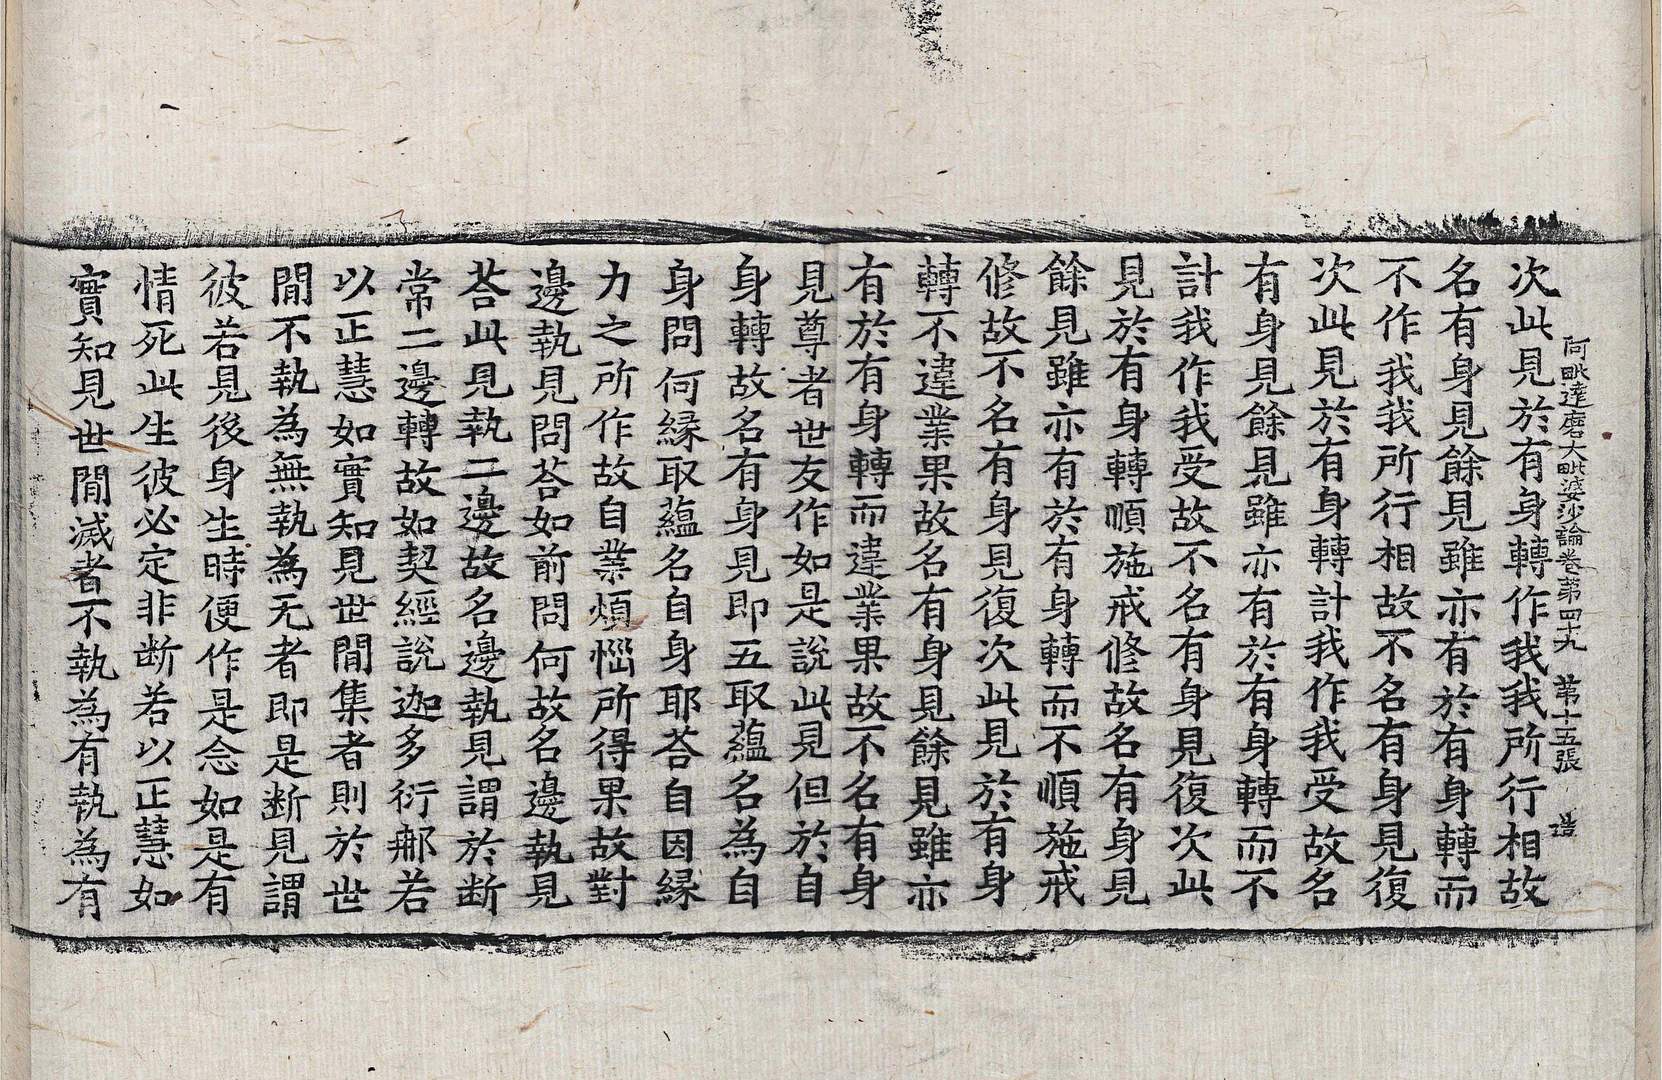 阿毗達磨大毗婆沙論卷第四十九 第十五張 造
次此見於有身轉作我我所行相故
名有身見餘見雖亦有於有身轉而
不作我我所行相故不名有身見復
次此見於有身轉計我作我受故名
有身見餘見雖亦有於有身轉而不
計我作我受故不名有身見復次此
見於有身轉順施戒修故名有身見
餘見雖亦有於有身轉而不順施戒
修故不名有身見復次此見於有身
轉不違業果故名有身見餘見雖亦
有於有身轉而違業果故不名有身
見尊者世友作如是說此見但於自
身轉故名有身見即五取蘊名為自
身問何緣取蘊名自身耶荅自因緣
力之所作故自業煩惱所得果故對
邊執見問荅如前問何故名邊執見
荅此見執二邊故名邊執見謂於断
常二邊轉故如契經說迦多衍那若
以正慧如實知見世間集者則於世
間不執為無執為无者即是断見謂
彼若見後身生時便作是念如是有
情死此生彼必定非断若以正慧如
實知見世間滅者不執為有執為有